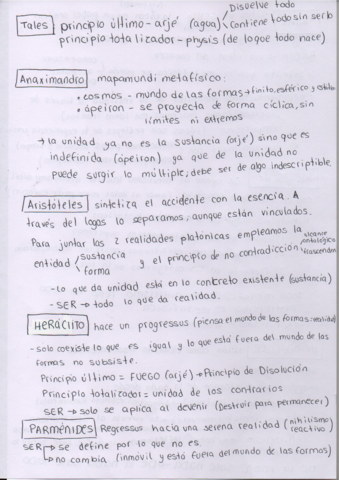 Disuelve todo
Tales principio último - arjé (agua) contiene todo sin serlo
principio totalizador - physis (de lo que todo nace)
Anaximandro mapamundi metafísico:
• cosmos - mundo de las formas → finito, esférico y
• ápeiron - se proyecta de forma cíclica, sin
límites ni extremos
→ la unidad ya no es la sustancia (arjé) sino que es
indefinida (ápeiron) ya que de la unidad no
puede surgir lo múltiple, debe ser de algo indescriptible
Aristóteles sintetiza el accidente con la esencia. A
través del logos lo separamos, aunque están vinculados.
Para juntar las 2 realidades platónicas empleamos la
entidad sustancia forma y el principio de no contradicción alcance ontológico
- lo que da unidad está en lo concreto existente (sustancia)
- SER → todo lo que da realidad.
HERÁCLITO hace un progressus (piensa el mundo de las formas: realidad)
- solo coexiste lo que es igual y lo que está fuera del mundo de las
formas no subsiste.
Principio último = FUEGO (arjé) → Principio de Disolución
Principio totalizador = unidad de los contrarios
SER → solo se aplica al devenir (Destruir para permanecer)
PARMÉNIDES Regressus hacia una serena realidad (nihilismo reactivo)
SER → se define por lo que no es.
↳ no cambia (inmovil y está fuera del mundo de las formas)